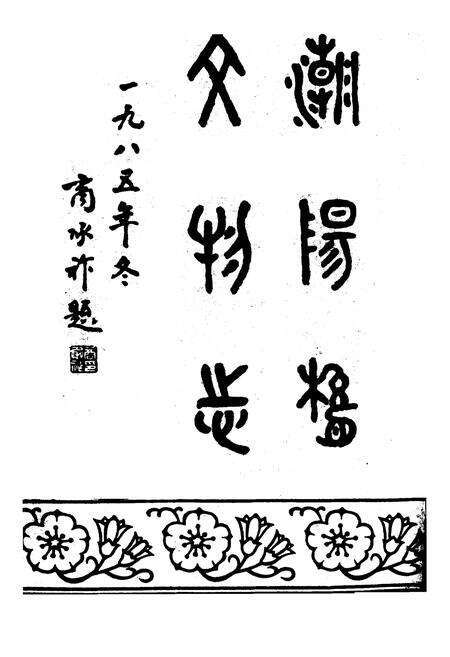 潮陽縣
文物志
一九八五年冬
商承祚題